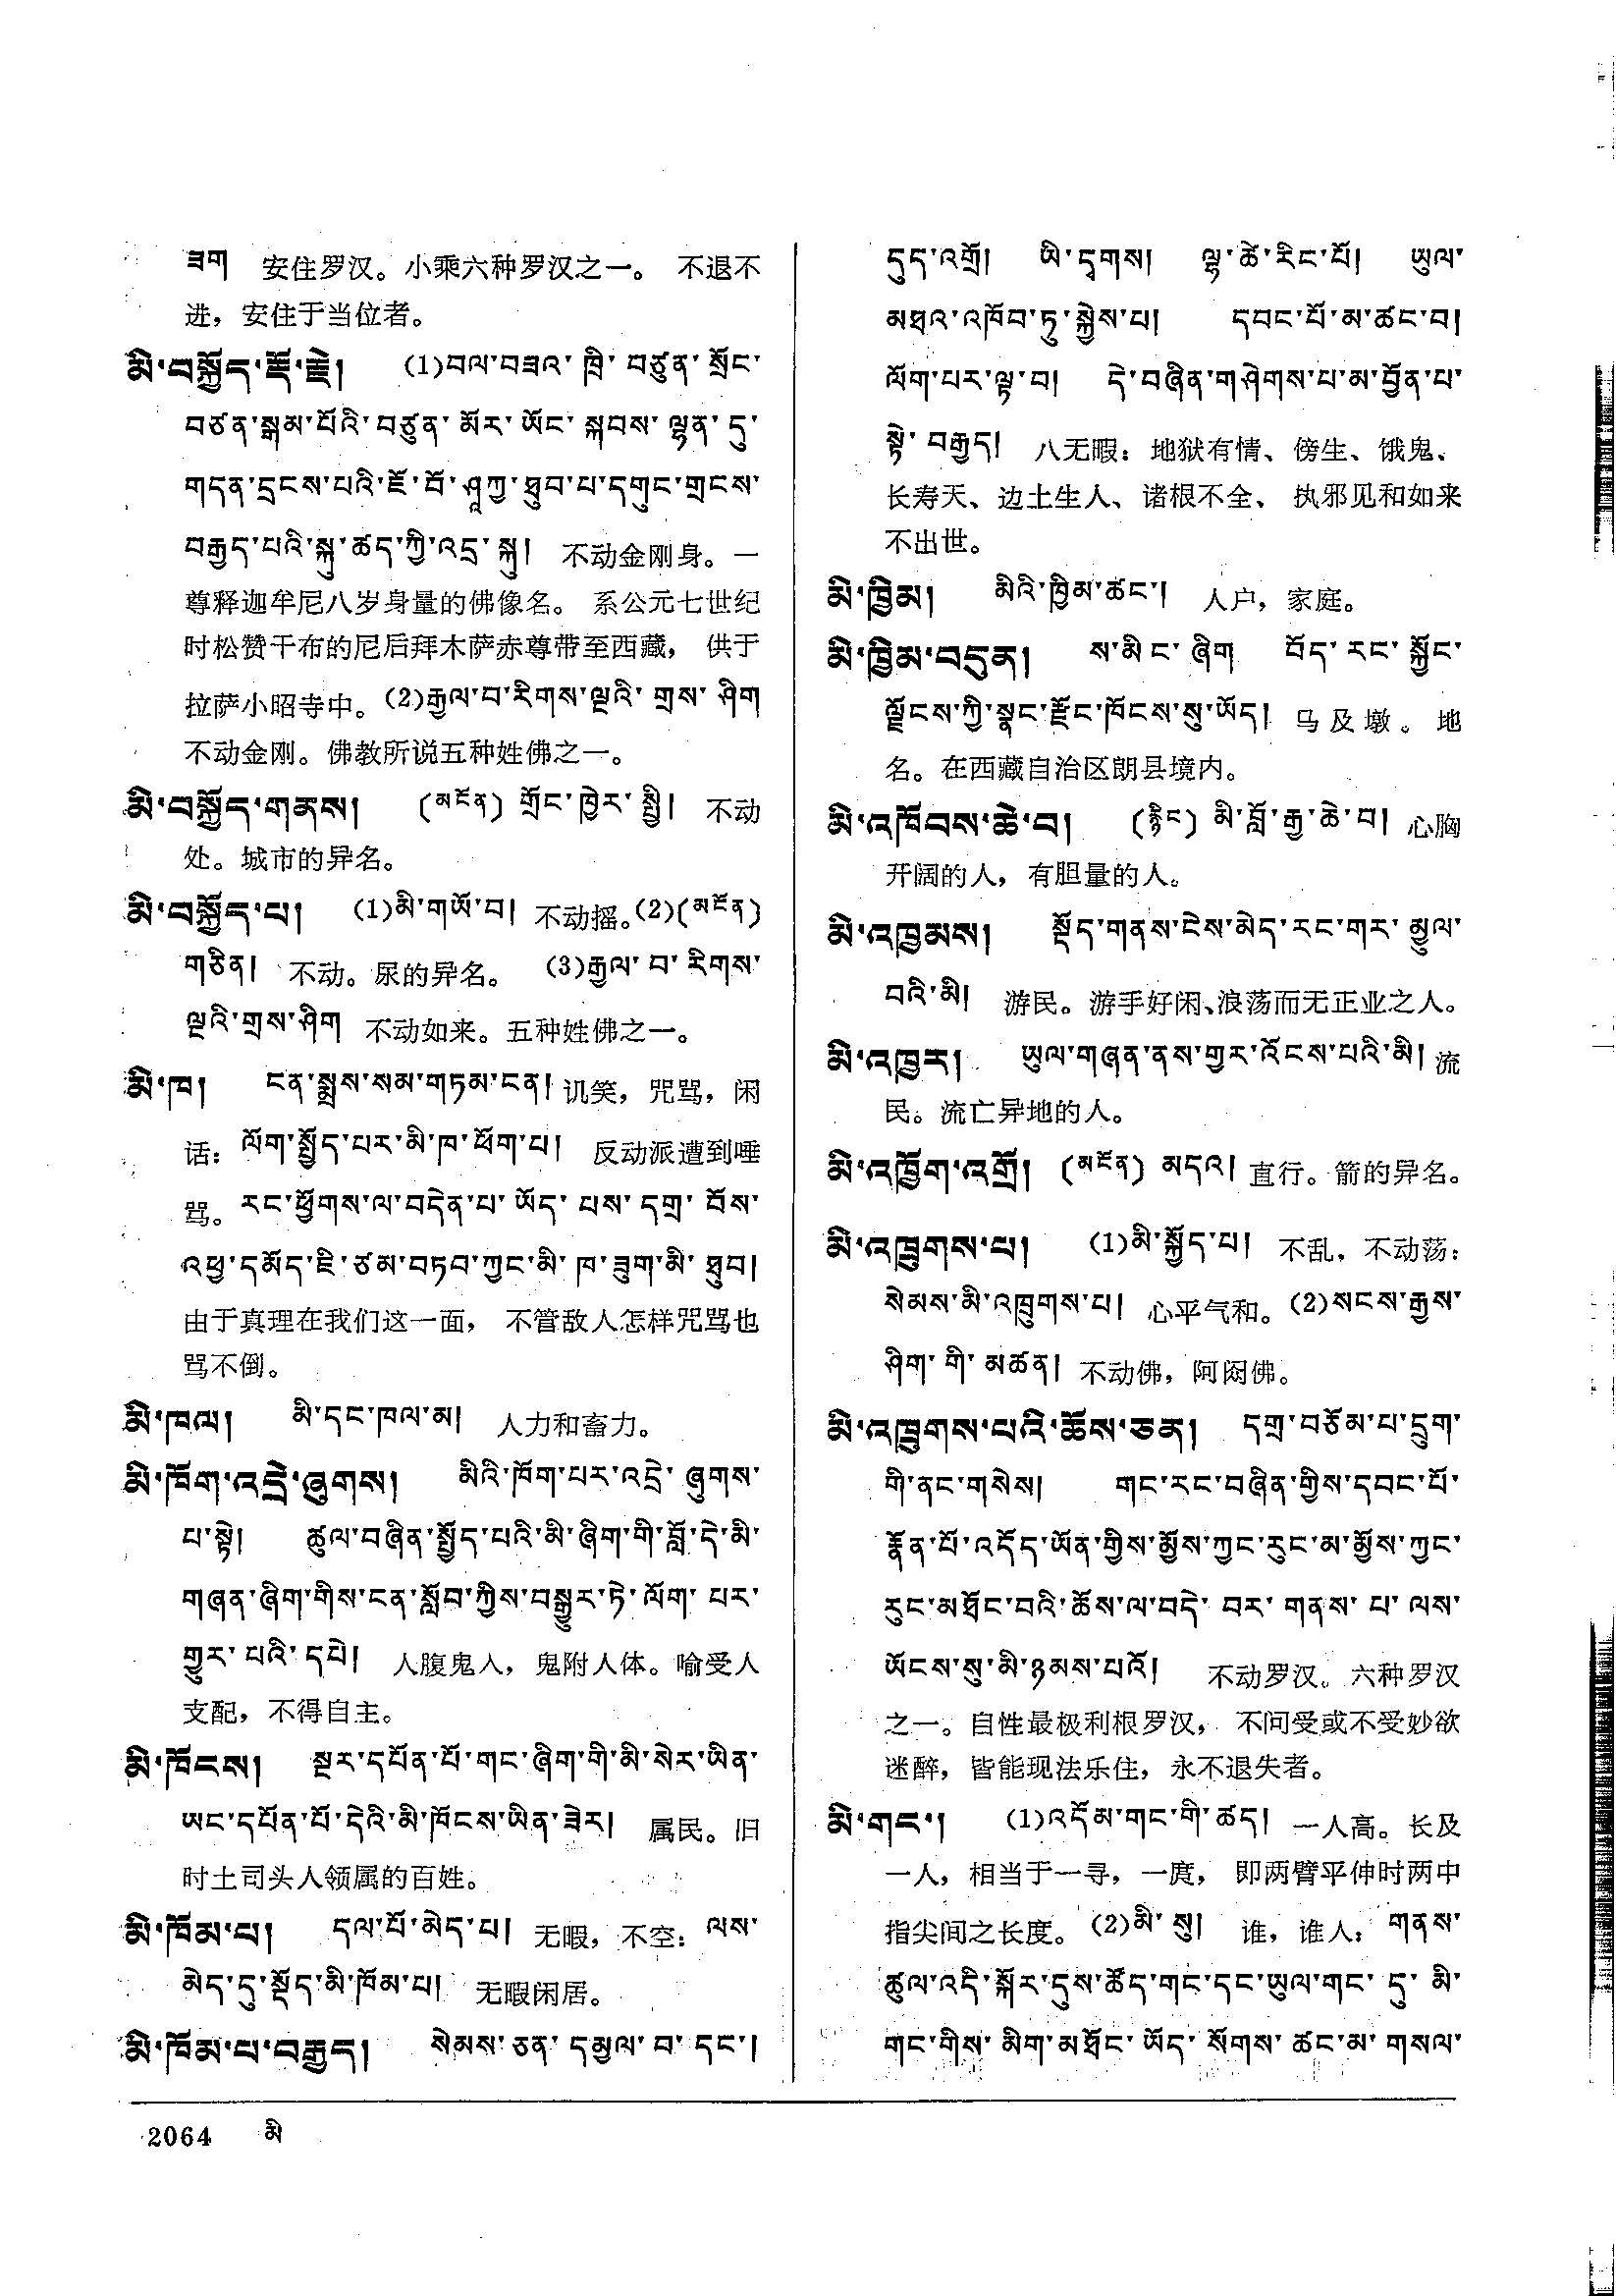 ཟག 安住罗汉。小乘六种罗汉之一。 不退不
进，安住于当位者。
མི་བསྐྱོད་རྡོ་རྗེ། (1)བལ་བཟའ་ ཁྲི་ བཙུན་ སྲོང་
བཙན་སྒམ་པོའི་བཙུན་ མོར་ ཡོང་ སྐབས་ ལྷན་ དུ་
གདན་དྲངས་པའི་ཇོ་བོ་ཤཱཀྱ་ཐུབ་པ་དགུང་གྲངས་
བརྒྱད་པའི་སྐུ་ཚད་ཀྱི་འདྲ་སྐུ། 不动金刚身。一
尊释迦牟尼八岁身量的佛像名。 系公元七世纪
时松赞干布的尼后拜木萨赤尊带至西藏， 供于
拉萨小昭寺中。(2)རྒྱལ་བ་རིགས་ལྔའི་ གྲས་ ཤིག
不动金刚。佛教所说五种姓佛之一。
མི་བསྐྱོད་གནས། (མངོན) གྲོང་ཁྱེར་སྤྱི། 不动
处。城市的异名。
མི་བསྐྱོད་པ། (1)མི་གཡོ་བ། 不动摇。(2)(མངོན)
གཅིན། 不动。尿的异名。 (3)རྒྱལ་ བ་ རིགས་
ལྔའི་གྲས་ཤིག 不动如来。五种姓佛之一。
མི་ཁ། ངན་སྨྲས་སམ་གཏམ་ངན། 讥笑，咒骂，闲
话：ལོག་སྤྱོད་པར་མི་ཁ་ཕོག་པ། 反动派遭到唾
骂。རང་ཕྱོགས་ལ་བདེན་པ་ ཡོད་ པས་ དགྲ་ བོས་
འཕྱ་དམོད་ཇི་ཙམ་བཏབ་ཀྱང་མི་ ཁ་ཟུག་མི་ ཐུབ།
由于真理在我们这一面， 不管敌人怎样咒骂也
骂不倒。
མི་ཁལ། མི་དང་ཁལ་མ། 人力和畜力。
མི་ཁོག་འདྲེ་ཞུགས། མིའི་ཁོག་པར་འདྲེ་ ཞུགས་
པ་སྟེ། ཚུལ་བཞིན་སྤྱོད་པའི་མི་ཞིག་གི་བློ་དེ་མི་
གཞན་ཞིག་གིས་ངན་སློབ་ཀྱིས་བསྒྱུར་ཏེ་ ལོག་ པར་
གྱུར་ པའི་ དཔེ། 人腹鬼入，鬼附人体。喻受人
支配，不得自主。
མི་ཁོངས། སྔར་དཔོན་པོ་གང་ཞིག་གི་མི་སེར་ཡིན་
ཡང་དཔོན་པོ་དེའི་མི་ཁོངས་ཡིན་ཟེར། 属民。旧
时土司头人领属的百姓。
མི་ཁོམ་པ། དལ་པོ་མེད་པ། 无暇，不空：ལས་
མེད་དུ་སྡོད་མི་ཁོམ་པ། 无暇闲居。
མི་ཁོམ་པ་བརྒྱད། སེམས་ ཅན་ དམྱལ་ བ་ དང་།
དུད་འགྲོ། ཡི་དྭགས། ལྷ་ཚེ་རིང་པོ། ཡུལ་
མཐའ་འཁོབ་ཏུ་སྐྱེས་པ། དབང་པོ་མ་ཚང་བ།
ལོག་པར་ལྟ་བ། དེ་བཞིན་གཤེགས་པ་མ་བྱོན་པ་
སྟེ་ བརྒྱད། 八无暇：地狱有情、傍生、饿鬼、
长寿天、边土生人、诸根不全、 执邪见和如来
不出世。
མི་ཁྱིམ། མིའི་ཁྱིམ་ཚང་། 人户，家庭。
མི་ཁྱིམ་བདུན། ས་མིང་ ཞིག བོད་ རང་ སྐྱོང་
ལྗོངས་ཀྱི་སྣང་རྫོང་ཁོངས་སུ་ཡོད། 马及墩。地
名。在西藏自治区朗县境内。
མི་འཁོབས་ཆེ་བ། (རྙིང) མི་བློ་རྒྱ་ཆེ་བ། 心胸
开阔的人，有胆量的人。
མི་འཁྱམས། སྡོད་གནས་ངེས་མེད་རང་གར་ མྱུལ་
བའི་མི། 游民。游手好闲、浪荡而无正业之人。
མི་འཁྱར། ཡུལ་གཞན་ནས་གྱར་འོངས་པའི་མི། 流
民。流亡异地的人。
མི་འཁྱོག་འགྲོ། (མངོན) མདའ། 直行。箭的异名。
མི་འཁྲུགས་པ། (1)མི་སྐྱོད་པ། 不乱，不动荡：
སེམས་མི་འཁྲུགས་པ། 心平气和。(2)སངས་རྒྱས་
ཤིག་ གི་ མཚན། 不动佛，阿閦佛。
མི་འཁྲུགས་པའི་ཆོས་ཅན། དགྲ་བཅོམ་པ་དྲུག་
གི་ནང་གསེས། གང་རང་བཞིན་གྱིས་དབང་པོ་
རྣོན་པོ་འདོད་ཡོན་གྱིས་མྱོས་ཀྱང་རུང་མ་མྱོས་ཀྱང་
རུང་མཐོང་བའི་ཆོས་ལ་བདེ་ བར་ གནས་ པ་ ལས་
ཡོངས་སུ་མི་ཉམས་པའོ། 不动罗汉。六种罗汉
之一。自性最极利根罗汉， 不问受或不受妙欲
迷醉，皆能现法乐住，永不退失者。
མི་གང་། (1)འདོམ་གང་གི་ཚད། 一人高。长及
一人，相当于一寻，一庹， 即两臂平伸时两中
指尖间之长度。(2)མི་ སུ། 谁，谁人：གནས་
ཚུལ་འདི་སྐོར་དུས་ཚོད་གང་དང་ཡུལ་གང་ དུ་ མི་
གང་གིས་ མིག་མཐོང་ ཡོད་ སོགས་ ཚང་མ་ གསལ་
2064 མི